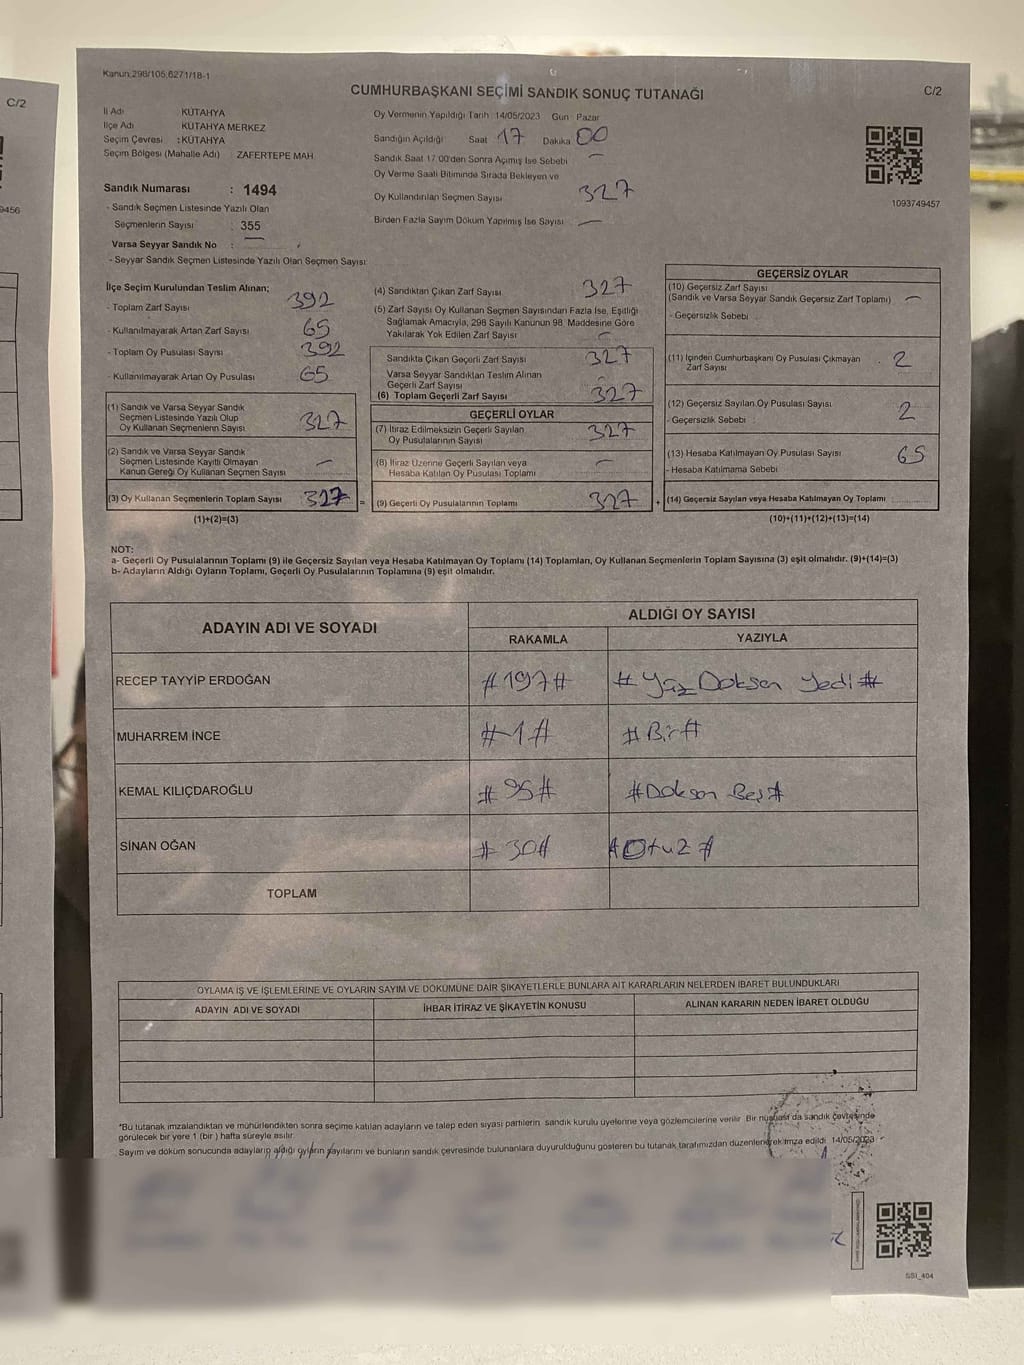 C/2
9456
Kanun:298/105,6271/18-1
CUMHURBAŞKANI SEÇİMİ SANDIK SONUÇ TUTANAĞI
C/2
İl Adı : KÜTAHYA
İlçe Adı : KÜTAHYA MERKEZ
Seçim Çevresi : KÜTAHYA
Seçim Bölgesi (Mahalle Adı) ZAFERTEPE MAH.
Sandık Numarası : 1494
- Sandık Seçmen Listesinde Yazılı Olan
Seçmenlerin Sayısı : 355
Varsa Seyyar Sandık No : —
- Seyyar Sandık Seçmen Listesinde Yazılı Olan Seçmen Sayısı:
Oy Vermenin Yapıldığı Tarih 14/05/2023 Gün Pazar
Sandığın Açıldığı Saat 17 Dakika 00
Sandık Saat 17:00'den Sonra Açımış İse Sebebi —
Oy Verme Saati Bitiminde Sırada Bekleyen ve
Oy Kullandırılan Seçmen Sayısı 327
Birden Fazla Sayım Döküm Yapılmış İse Sayısı —
1093749457
İlçe Seçim Kurulundan Teslim Alınan;
- Toplam Zarf Sayısı 392
- Kullanılmayarak Artan Zarf Sayısı 65
- Toplam Oy Pusulası Sayısı 392
- Kullanılmayarak Artan Oy Pusulası 65
(1) Sandık ve Varsa Seyyar Sandık
Seçmen Listesinde Yazılı Olup
Oy Kullanan Seçmenlerin Sayısı 327
(2) Sandık ve Varsa Seyyar Sandık
Seçmen Listesinde Kayıtlı Olmayan
Kanun Gereği Oy Kullanan Seçmen Sayısı —
(3) Oy Kullanan Seçmenlerin Toplam Sayısı 327 =
(1)+(2)=(3)
(4) Sandıktan Çıkan Zarf Sayısı 327
(5) Zarf Sayısı Oy Kullanan Seçmen Sayısından Fazla İse, Eşitliği
Sağlamak Amacıyla, 298 Sayılı Kanunun 98. Maddesine Göre
Yakılarak Yok Edilen Zarf Sayısı —
Sandıkta Çıkan Geçerli Zarf Sayısı 327
Varsa Seyyar Sandıktan Teslim Alınan
Geçerli Zarf Sayısı —
(6) Toplam Geçerli Zarf Sayısı 327
GEÇERLİ OYLAR
(7) İtiraz Edilmeksizin Geçerli Sayılan
Oy Pusulalarının Sayısı 327
(8) İtiraz Üzerine Geçerli Sayılan veya
Hesaba Katılan Oy Pusulası Toplamı —
(9) Geçerli Oy Pusulalarının Toplamı 327 +
GEÇERSİZ OYLAR
(10) Geçersiz Zarf Sayısı
(Sandık ve Varsa Seyyar Sandık Geçersiz Zarf Toplamı) —
- Geçersizlik Sebebi
(11) İçinden Cumhurbaşkanı Oy Pusulası Çıkmayan
Zarf Sayısı 2
(12) Geçersiz Sayılan Oy Pusulası Sayısı 2
- Geçersizlik Sebebi
(13) Hesaba Katılmayan Oy Pusulası Sayısı 65
- Hesaba Katılmama Sebebi
(14) Geçersiz Sayılan veya Hesaba Katılmayan Oy Toplamı
(10)+(11)+(12)+(13)=(14)
NOT:
a- Geçerli Oy Pusulalarının Toplamı (9) ile Geçersiz Sayılan veya Hesaba Katılmayan Oy Toplamı (14) Toplamları, Oy Kullanan Seçmenlerin Toplam Sayısına (3) eşit olmalıdır. (9)+(14)=(3)
b- Adayların Aldığı Oyların Toplamı, Geçerli Oy Pusulalarının Toplamına (9) eşit olmalıdır.
ADAYIN ADI VE SOYADI
ALDIĞI OY SAYISI
RAKAMLA
YAZIYLA
RECEP TAYYİP ERDOĞAN #197# # Yüz Doksan Yedi #
MUHARREM İNCE #1# #Bir#
KEMAL KILIÇDAROĞLU #95# #Doksan Beş#
SİNAN OĞAN #30# #Otuz#
TOPLAM
OYLAMA İŞ VE İŞLEMLERİNE VE OYLARIN SAYIM VE DÖKÜMÜNE DAİR ŞİKAYETLERLE BUNLARA AİT KARARLARIN NELERDEN İBARET BULUNDUKLARI
ADAYIN ADI VE SOYADI
İHBAR İTİRAZ VE ŞİKAYETİN KONUSU
ALINAN KARARIN NEDEN İBARET OLDUĞU
*Bu tutanak imzalandıktan ve mühürlendikten sonra seçime katılan adayların ve talep eden siyasi partilerin sandık kurulu üyelerine veya gözlemcilerine verilir. Bir nüshası da sandık çevresinde
görülecek bir yere 1 (bir) hafta süreyle asılır.
Sayım ve döküm sonucunda adayların aldığı oyların sayılarını ve bunların sandık çevresinde bulunanlara duyurulduğunu gösteren bu tutanak tarafımızdan düzenlenerek imza edildi. 14/05/2023
SSI_404